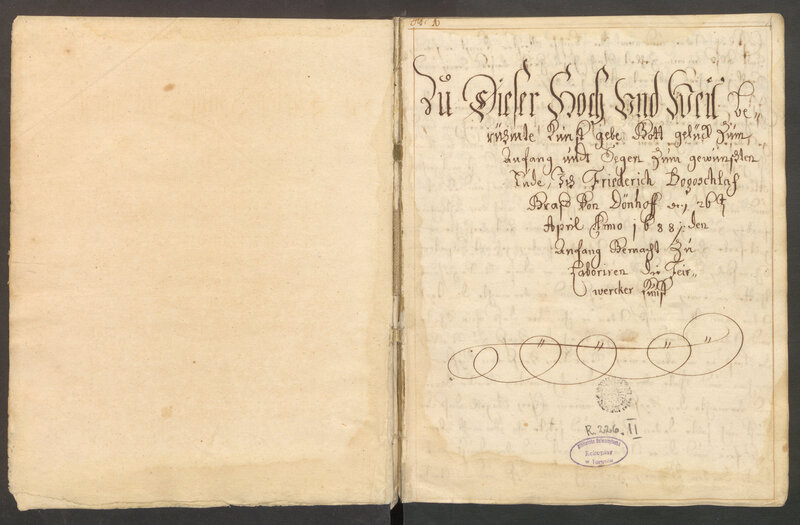 Zu Dieser Hoch Und Weit Be-
rühmte Kunst gebe Gott gelück zum
Anfang undt Segen zum gewünschten
Ende, Ich Friederich Bogoschlaf
Graff Von Dönhoff den 26t
April Anno 1688 den
Anfang Gemacht Zu
Laboriren die Feir-
wercker Kunst
R. 226. II
w Toruniu